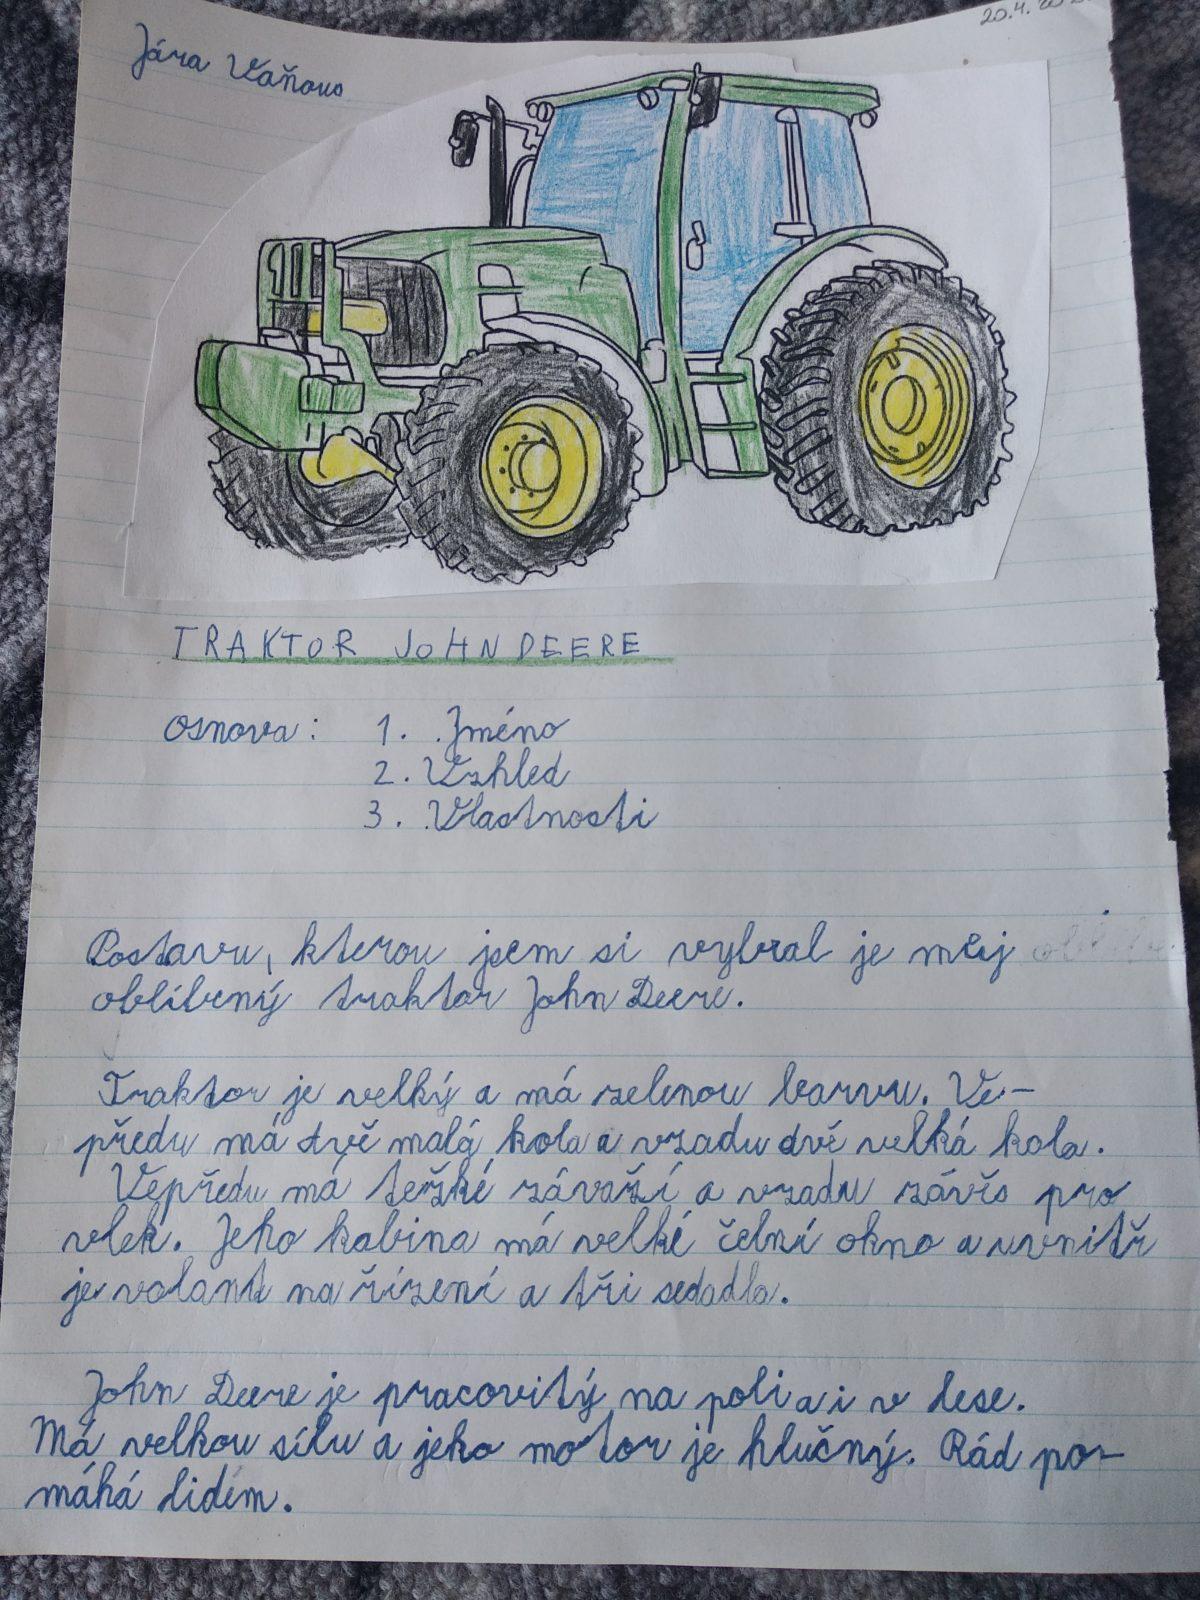 20.4.
Jára Vaňous
TRAKTOR JOHN DEERE
Osnova: 1. Jméno
2. Vzhled
3. Vlastnosti
Postavu, kterou jsem si vybral je můj
oblíbený traktor John Deere.
Traktor je velký a má zelenou barvu. Ve-
předu má dvě malá kola a vzadu dvě velká kola.
Vepředu má težké závaží a vzadu závěs pro
vlek. Jeho kabina má velké čelní okno a uvnitř
je volant na řízení a tři sedadla.
John Deere je pracovitý na poli a i v lese.
Má velkou sílu a jeho motor je hlučný. Rád po-
máhá lidem.